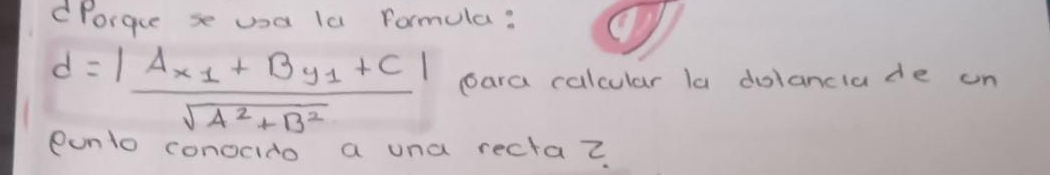 ¿Porque se usa la formula:
d = | Ax1 + By1 + C | / √A² + B² para calcular la distancia de un
punto conocido a una recta?